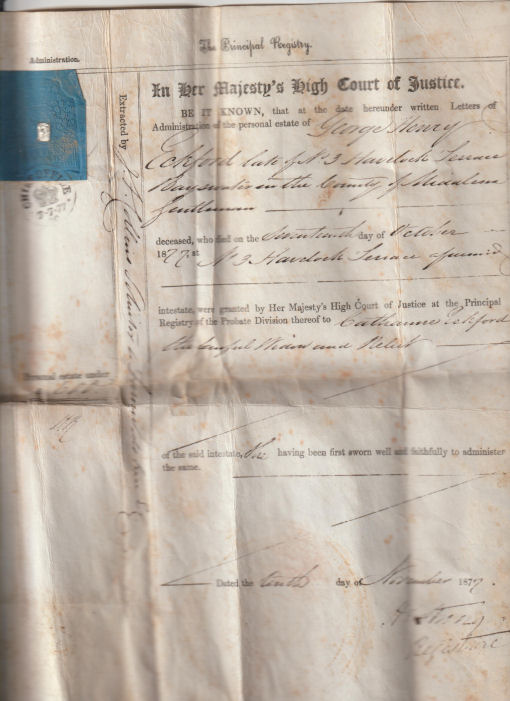 The Principal Registry.
Administration.
In Her Majesty's High Court of Justice.
BE IT KNOWN, that at the date hereunder written Letters of
Administration of the personal estate of George Henry
Eckford late of No 3 Havelock Terrace
Bayswater in the County of Middlesex
Gentleman
deceased, who died on the Seventeenth day of October
1877 at No 3 Havelock Terrace aforesaid
intestate, were granted by Her Majesty's High Court of Justice at the Principal
Registry of the Probate Division thereof to Catharine Eckford
the lawful Widow and Relict
Personal estate under
of the said intestate, She having been first sworn well and faithfully to administer
the same.
Dated the tenth day of November 1877.
Registrar
Extracted by